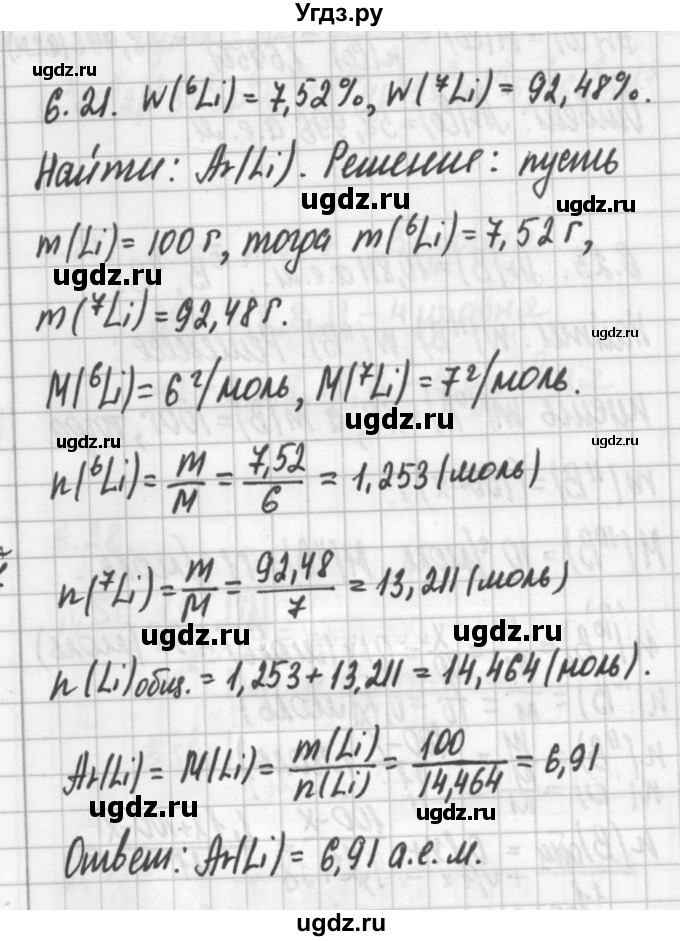 Угдз.ру
ugdz.ru
6.21. W(⁶Li) = 7,52%, W(⁷Li) = 92,48%.
Найти: Ar(Li). Решение: пусть
ugdz.ru
m(Li) = 100 г, тогда m(⁶Li) = 7,52 г,
ugdz.ru
m(⁷Li) = 92,48 г.
ugdz.ru
M(⁶Li) = 6 г/моль, M(⁷Li) = 7 г/моль.
ugdz.ru
ugdz.ru
ugdz.ru
n(⁶Li) = m/M = 7,52/6 = 1,253 (моль)
n(⁷Li) = m/M = 92,48/7 = 13,211 (моль)
ugdz.ru
ugdz.ru
n(Li)общ. = 1,253 + 13,211 = 14,464 (моль).
Ar(Li) = M(Li) = m(Li)/n(Li) = 100/14,464 = 6,91
ugdz.ru
ugdz.ru
Ответ: Ar(Li) = 6,91 а.е.м.
ugdz.ru